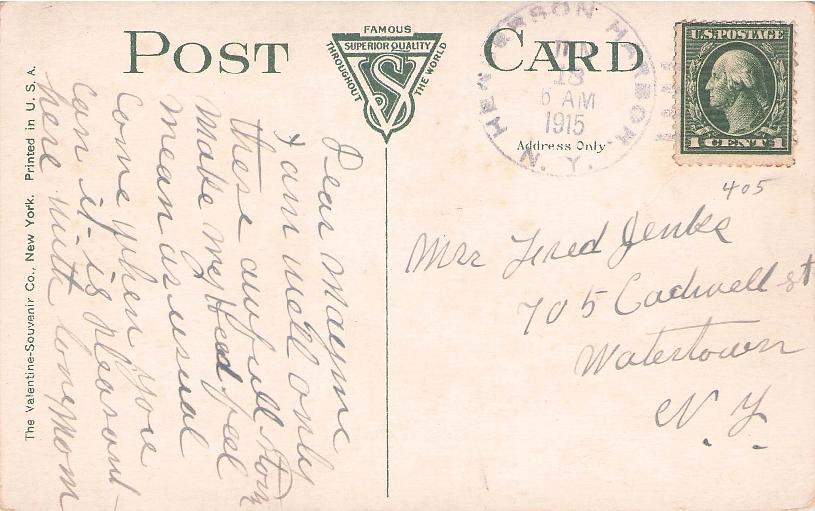 POST CARD
FAMOUS
SUPERIOR QUALITY
THROUGHOUT THE WORLD
VS
HENDERSON HARBOR
18
6 AM
1915
N. Y.
Address Only
U.S. POSTAGE
1 CENT 1
405
Mrs Fred Jenks
705 Cadwell st
Watertown
N. Y.
Dear Mayme
I am well only
these awfull storm
make my Head feel
mean as usual
Come when you
can it is pleasant
here with love Mom
The Valentine-Souvenir Co., New York. Printed in U. S. A.